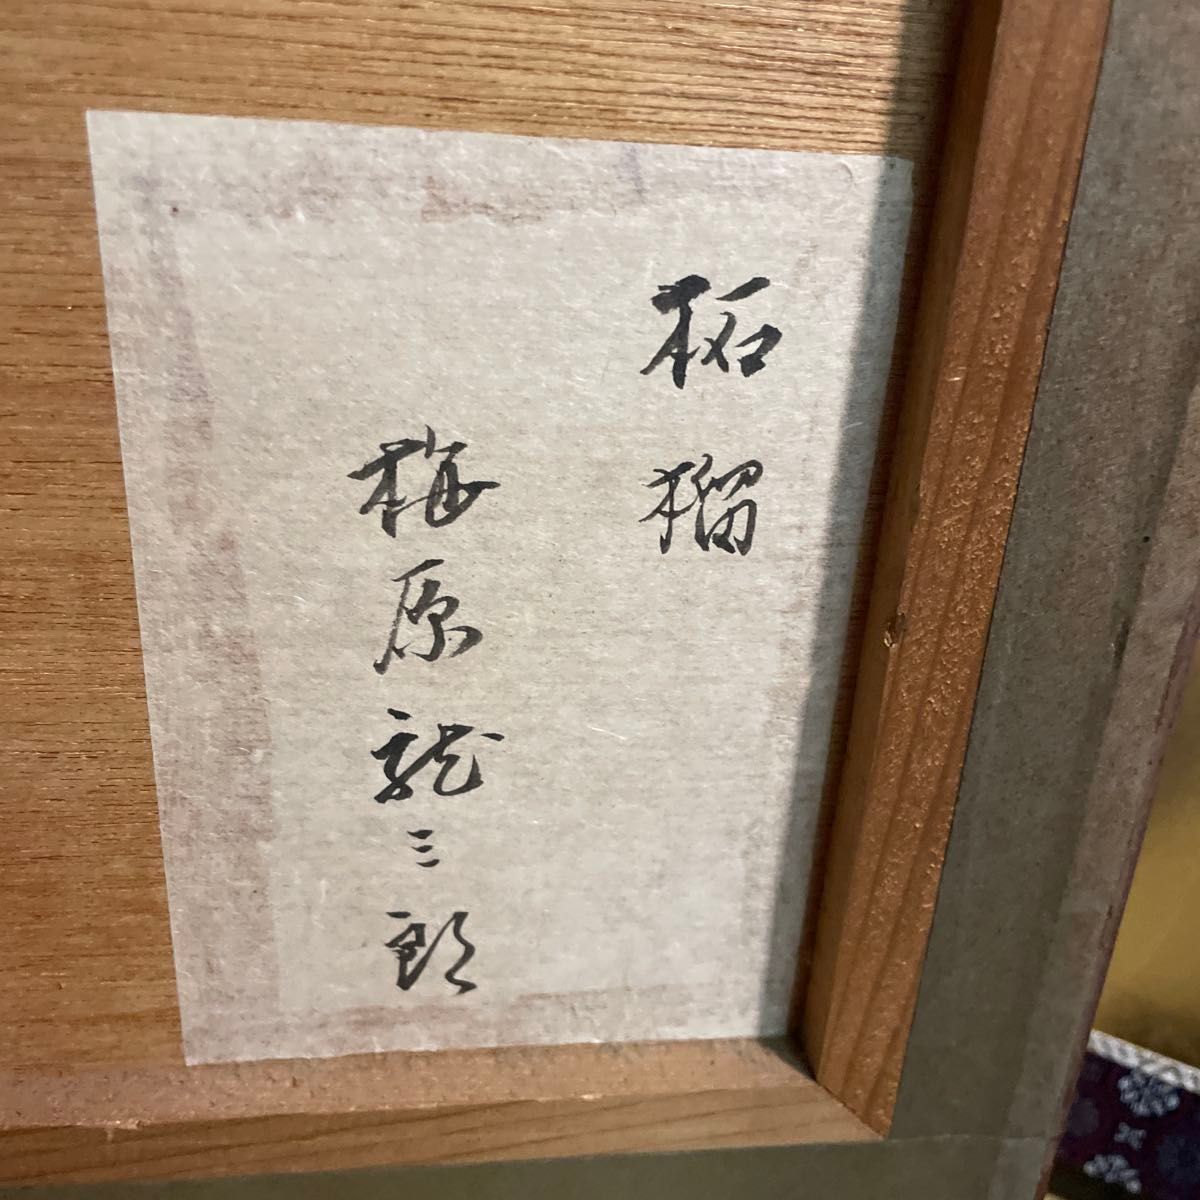 柘榴
梅原龍三郎